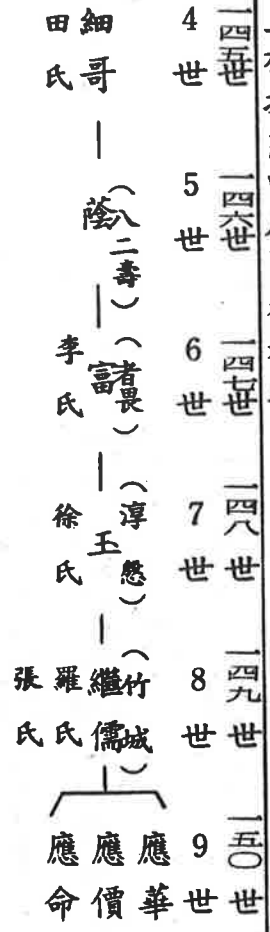 一四五世
4世
細哥
田氏
一四六世
5世
蔭
(八二壽)
一四七世
6世
富
(者畏)
李氏
一四八世
7世
玉
(淳慇)
徐氏
一四九世
8世
繼儒
(竹城)
羅氏
張氏
一五〇世
9世
應華
應價
應命